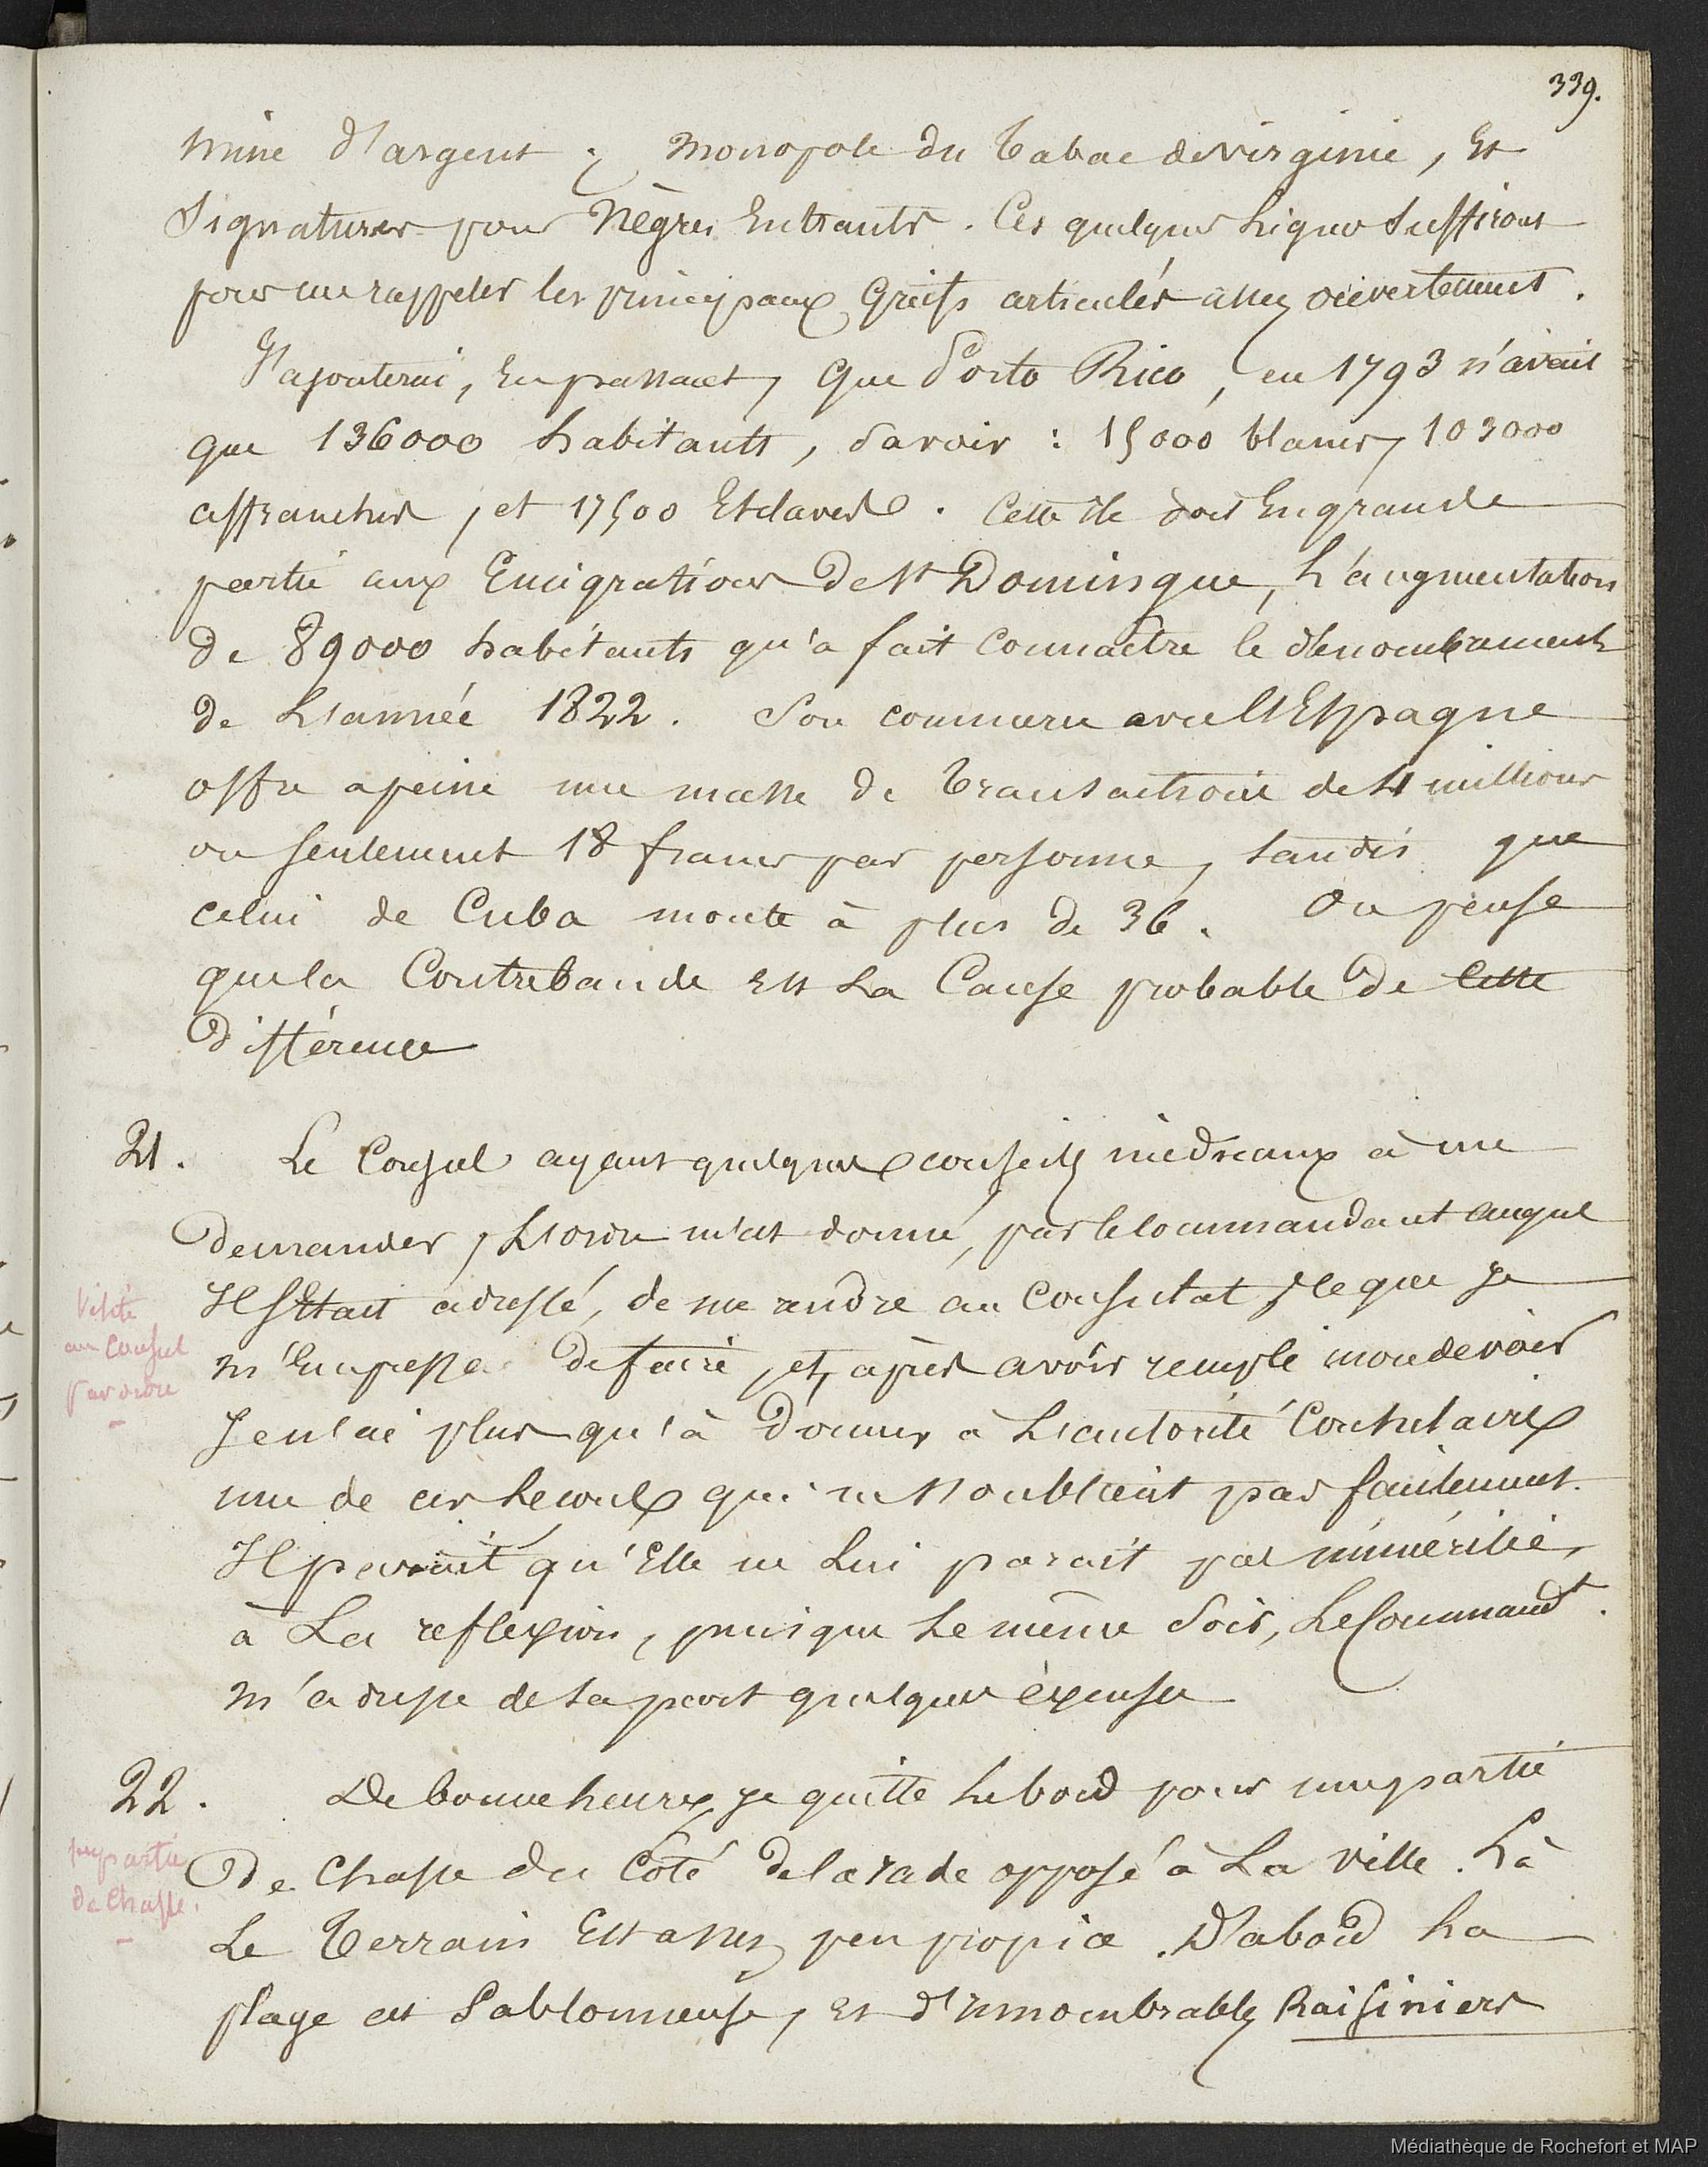 339.
mine d'argent ; Monopole du Tabac de Virginie, Et
Signatures pour Nègres Entrants. Ces quelques Lignes Suffiront
pour me rappeler les principaux Griefs articulés assez ouvertement.
J'ajouterai, En passant, Que Porto Rico, en 1793 n'avait
que 136000 habitants, Savoir : 15000 blancs, 103000
affranchis, et 17500 Esclaves. Cette île doit En grande
partie aux Emigrations de St Domingue, L'augmentation
de 89000 habitants qu'a fait Connaître le dénombrement
de L'année 1822. Son commerce avec l'Espagne
offre a peine une masse de Transactions de 4 millions
ou seulement 18 francs par personne, tandis que
celui de Cuba monte à plus de 36. On pense
que la Contrebande Est La Cause probable de Cette
Différence
21. Le Consul ayant quelques conseils médicaux à me
Demander, L'ordre m'est donné, par le Commandant auquel
Il S'Etait adressé, de me rendre au Consulat, Ce que je
m'Empresse De faire, et, après avoir rempli mon devoir
Je n'ai plus qu'à Donner à L'autorité Consulaire
une de ces Leçons qui ne S'oublient pas facilement.
Il parait qu'Elle ne Lui parait pas imméritée,
à La reflexion, puisque Le même Soir, Le Commandt.
m'adresse de sa part quelques excuses
Visite
au Consul
par ordre
22. De bonne heure, je quitte Le bord pour une partie
De Chasse du Côté de la rade opposé à La Ville. Là
Le Terrain Est assez peu propice. D'abord La
plage est Sablonneuse, Et d'innombrables Raisiniers
une partie
de Chasse.
Médiathèque de Rochefort et MAP